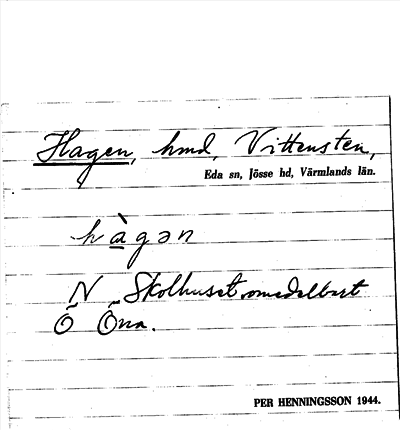 Hagen, hmd, Vittensten,
Eda sn, Jösse hd, Värmlands län.
hàgən
N Skolhuset omedelbart
Ö Öna.
PER HENNINGSSON 1944.